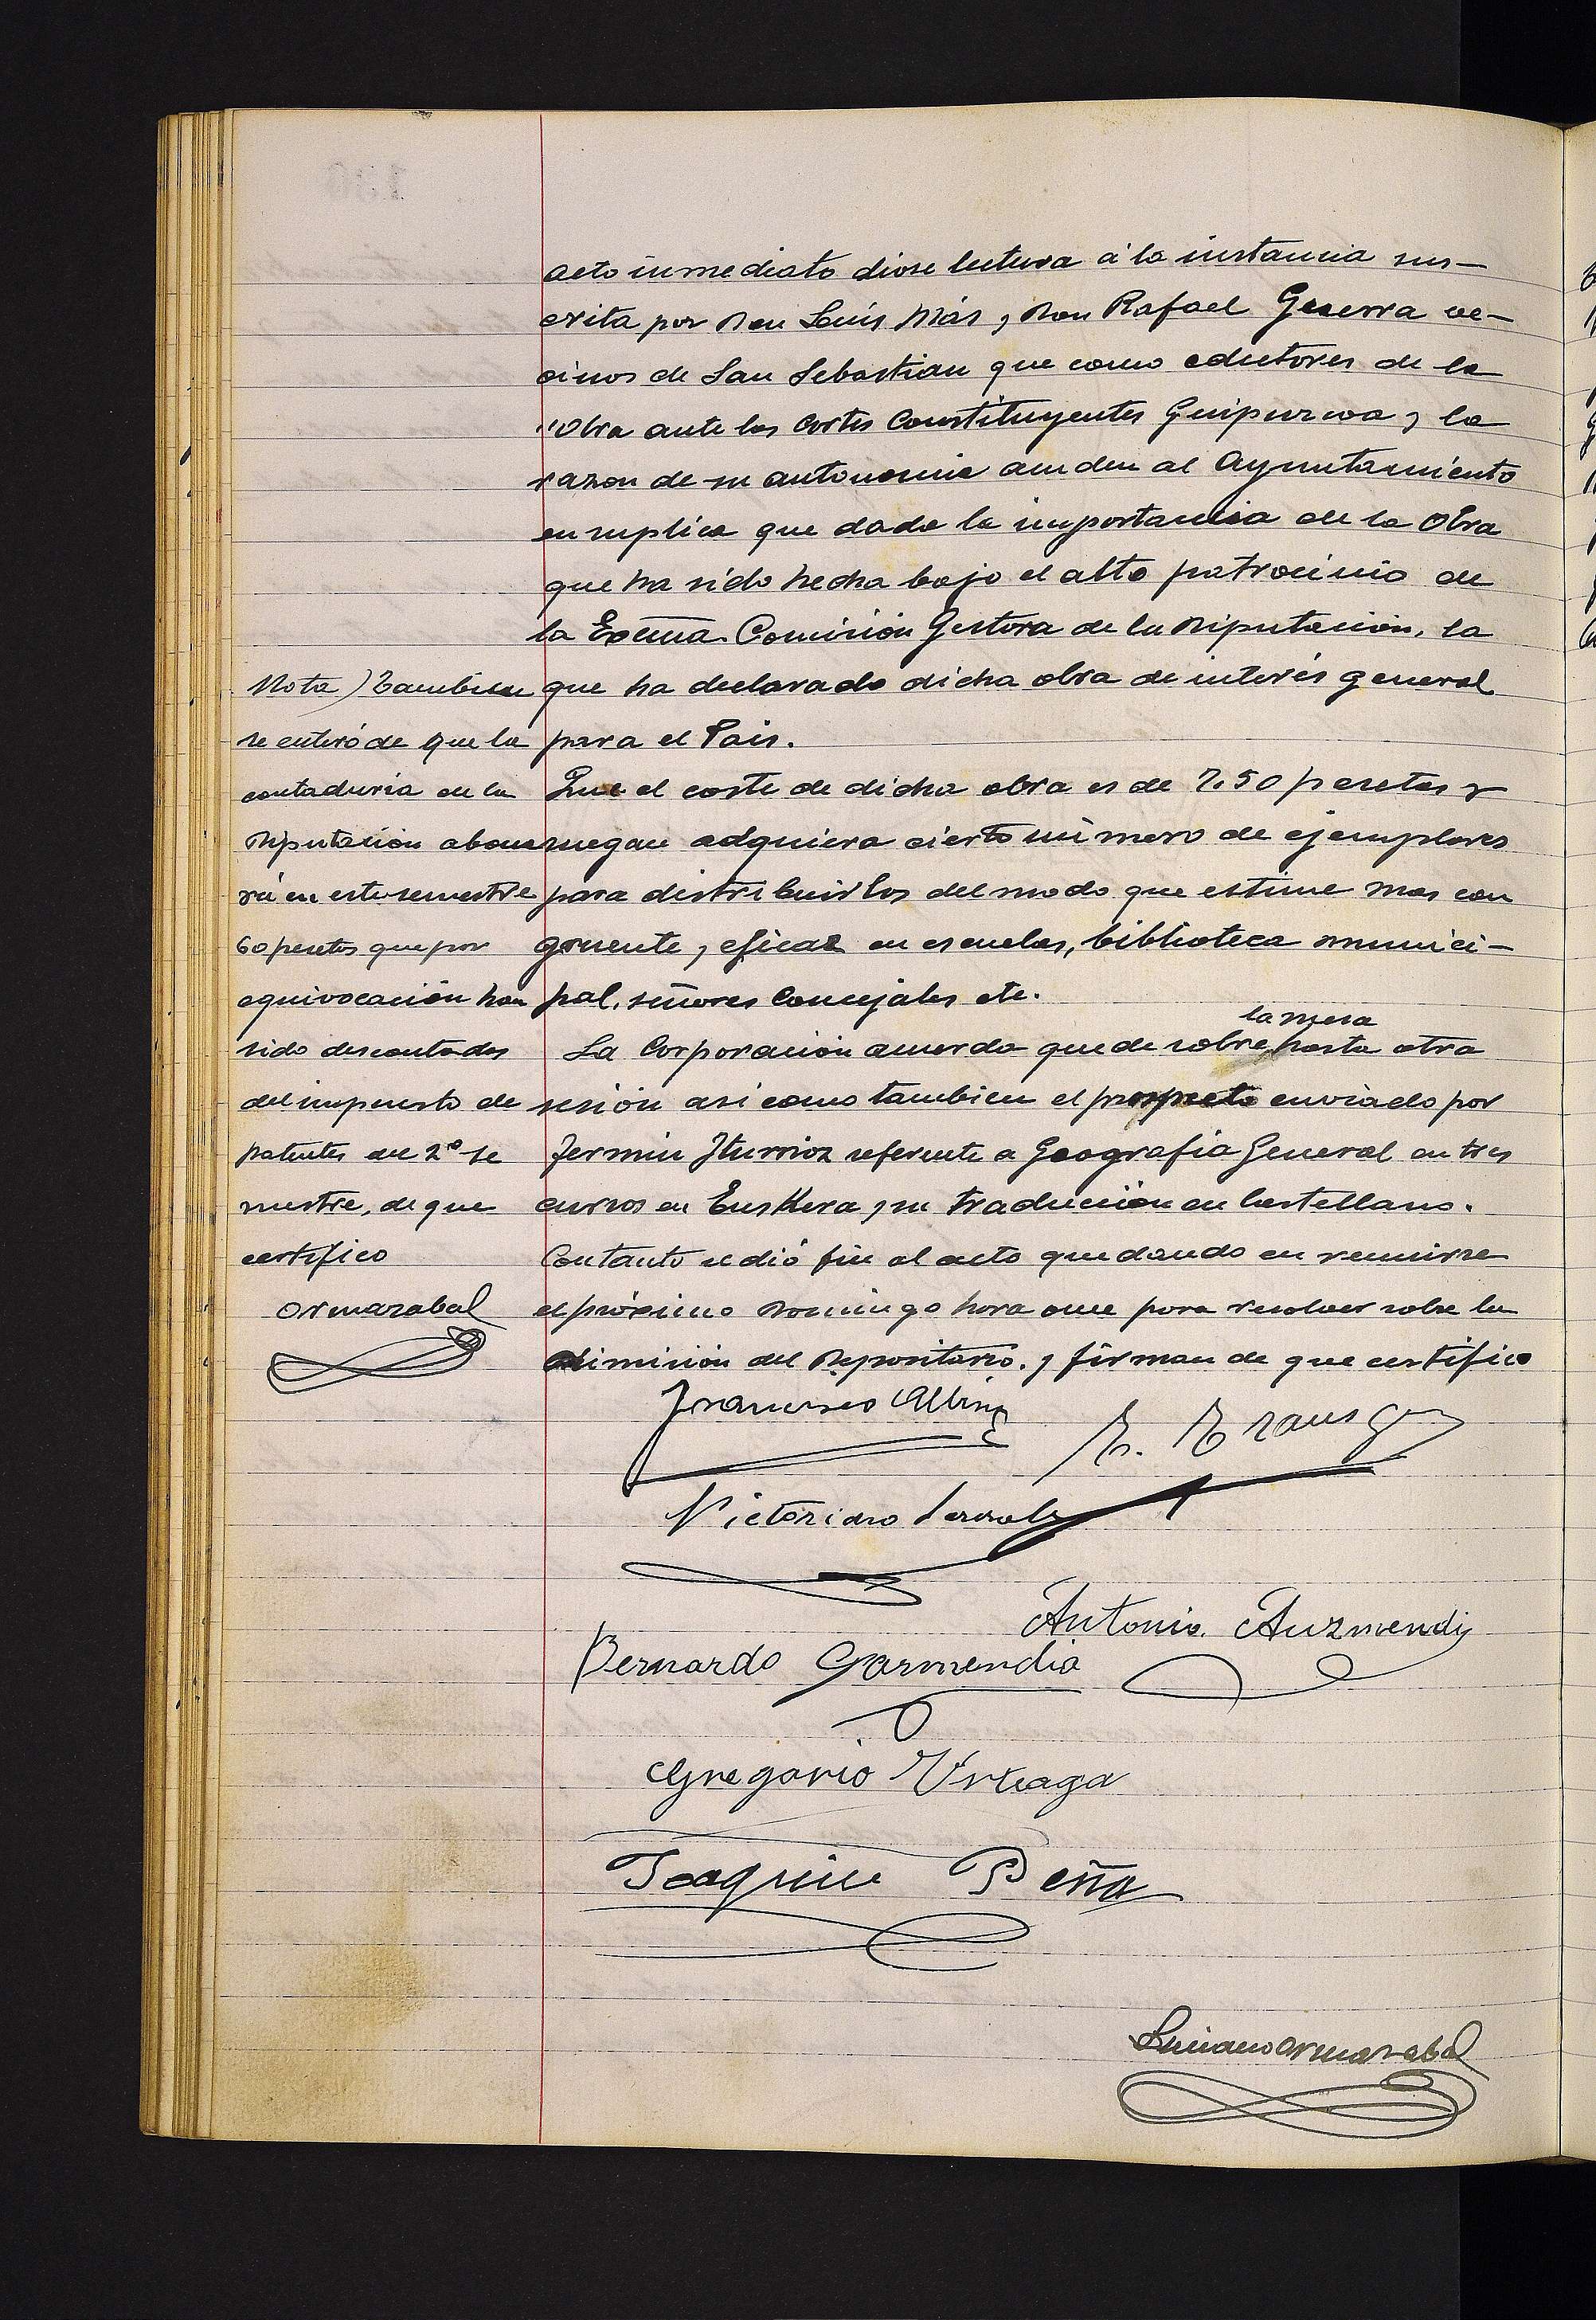 acto inmediato diose lectura á la instancia sus-
crita por Don Luís Más y Don Rafael Guerra ve-
cinos de San Sebastian que como editores de la
"Obra ante las Cortes Constituyentes Guipuzcoa y la
razon de su autonomia acuden al Ayuntamiento
en suplica que dada la importancia de la Obra
que ha sido hecha bajo el alto patrocinio de
la Excma. Comisión Gestora de la Diputación, la
que ha declarado dicha obra de interés general
para el Pais.
Que el coste de dicha obra es de 7.50 pesetas y
ruegan adquiera cierto número de ejemplares
para distribuirlos del modo que estime mas con
gruente y eficaz en escuelas, biblioteca munici-
pal, señores Concejales etc.
la mesa
La Corporación acuerda quede sobre hasta otra
sesión asi como tambien el prospecto enviado por
Fermin Iturrioz referente a Geografía General en tres
cursos en Euskera y su traducción en Castellano.
Contanto se dió fin al acto quedando en reunirse
el próximo Domingo hora once para resolver sobre la
dimisión del Depositario. y firman de que certifico
Nota) Tambien
se enteró de que la
contaduria de la
Diputación abona
rá en este semestre
60 pesetas que por
equivocación han
sido descontados
del impuesto de
patentes del 2º se
mestre, de que
certifico
Ormazabal
Francisco Albin
Victoriano
Antonio Auzmendi
Bernardo Garmendia
Gregorio Urteaga
Joaquin Peña
Luciano Ormazabal